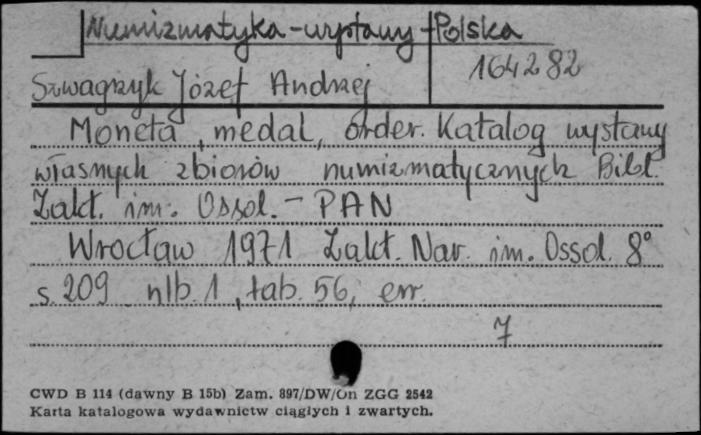 Numizmatyka - wystawy - Polska
164282
Szwagrzyk Józef Andrzej
Moneta, medal, order. Katalog wystawy
własnych zbiorów numizmatycznych Bibl.
Zakt. im. Ossol. - PAN
Wrocław 1971 Zakt. Nar. im. Ossol. 8°
s. 209 nlb. 1, tab. 56, err.
7
CWD B 114 (dawny B 15b) Zam. 897/DW/On ZGG 2542
Karta katalogowa wydawnictw ciągłych i zwartych.